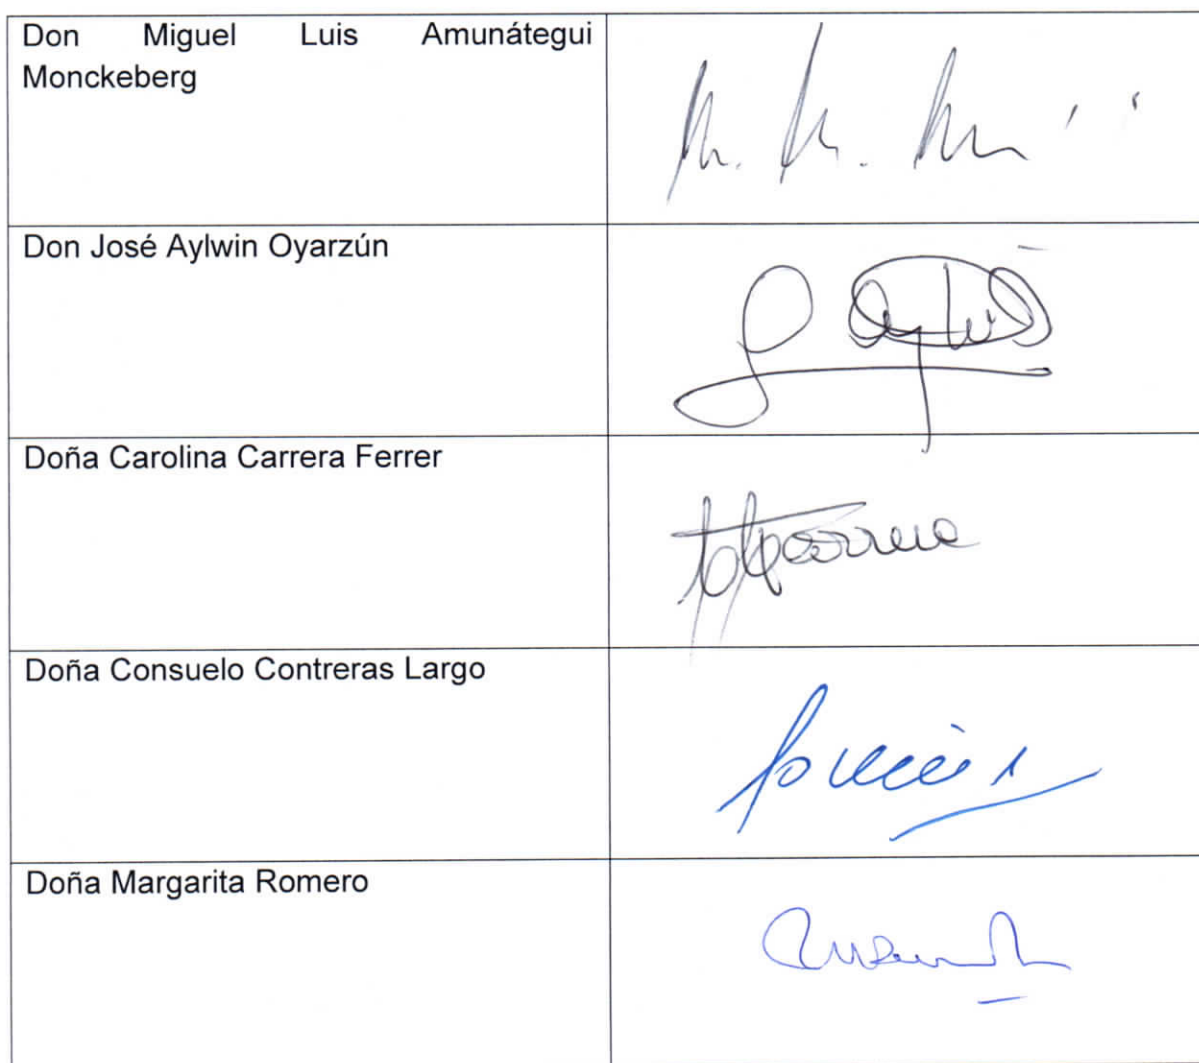 Don Miguel Luis Amunátegui
Monckeberg
Don José Aylwin Oyarzún
Doña Carolina Carrera Ferrer
Doña Consuelo Contreras Largo
Doña Margarita Romero